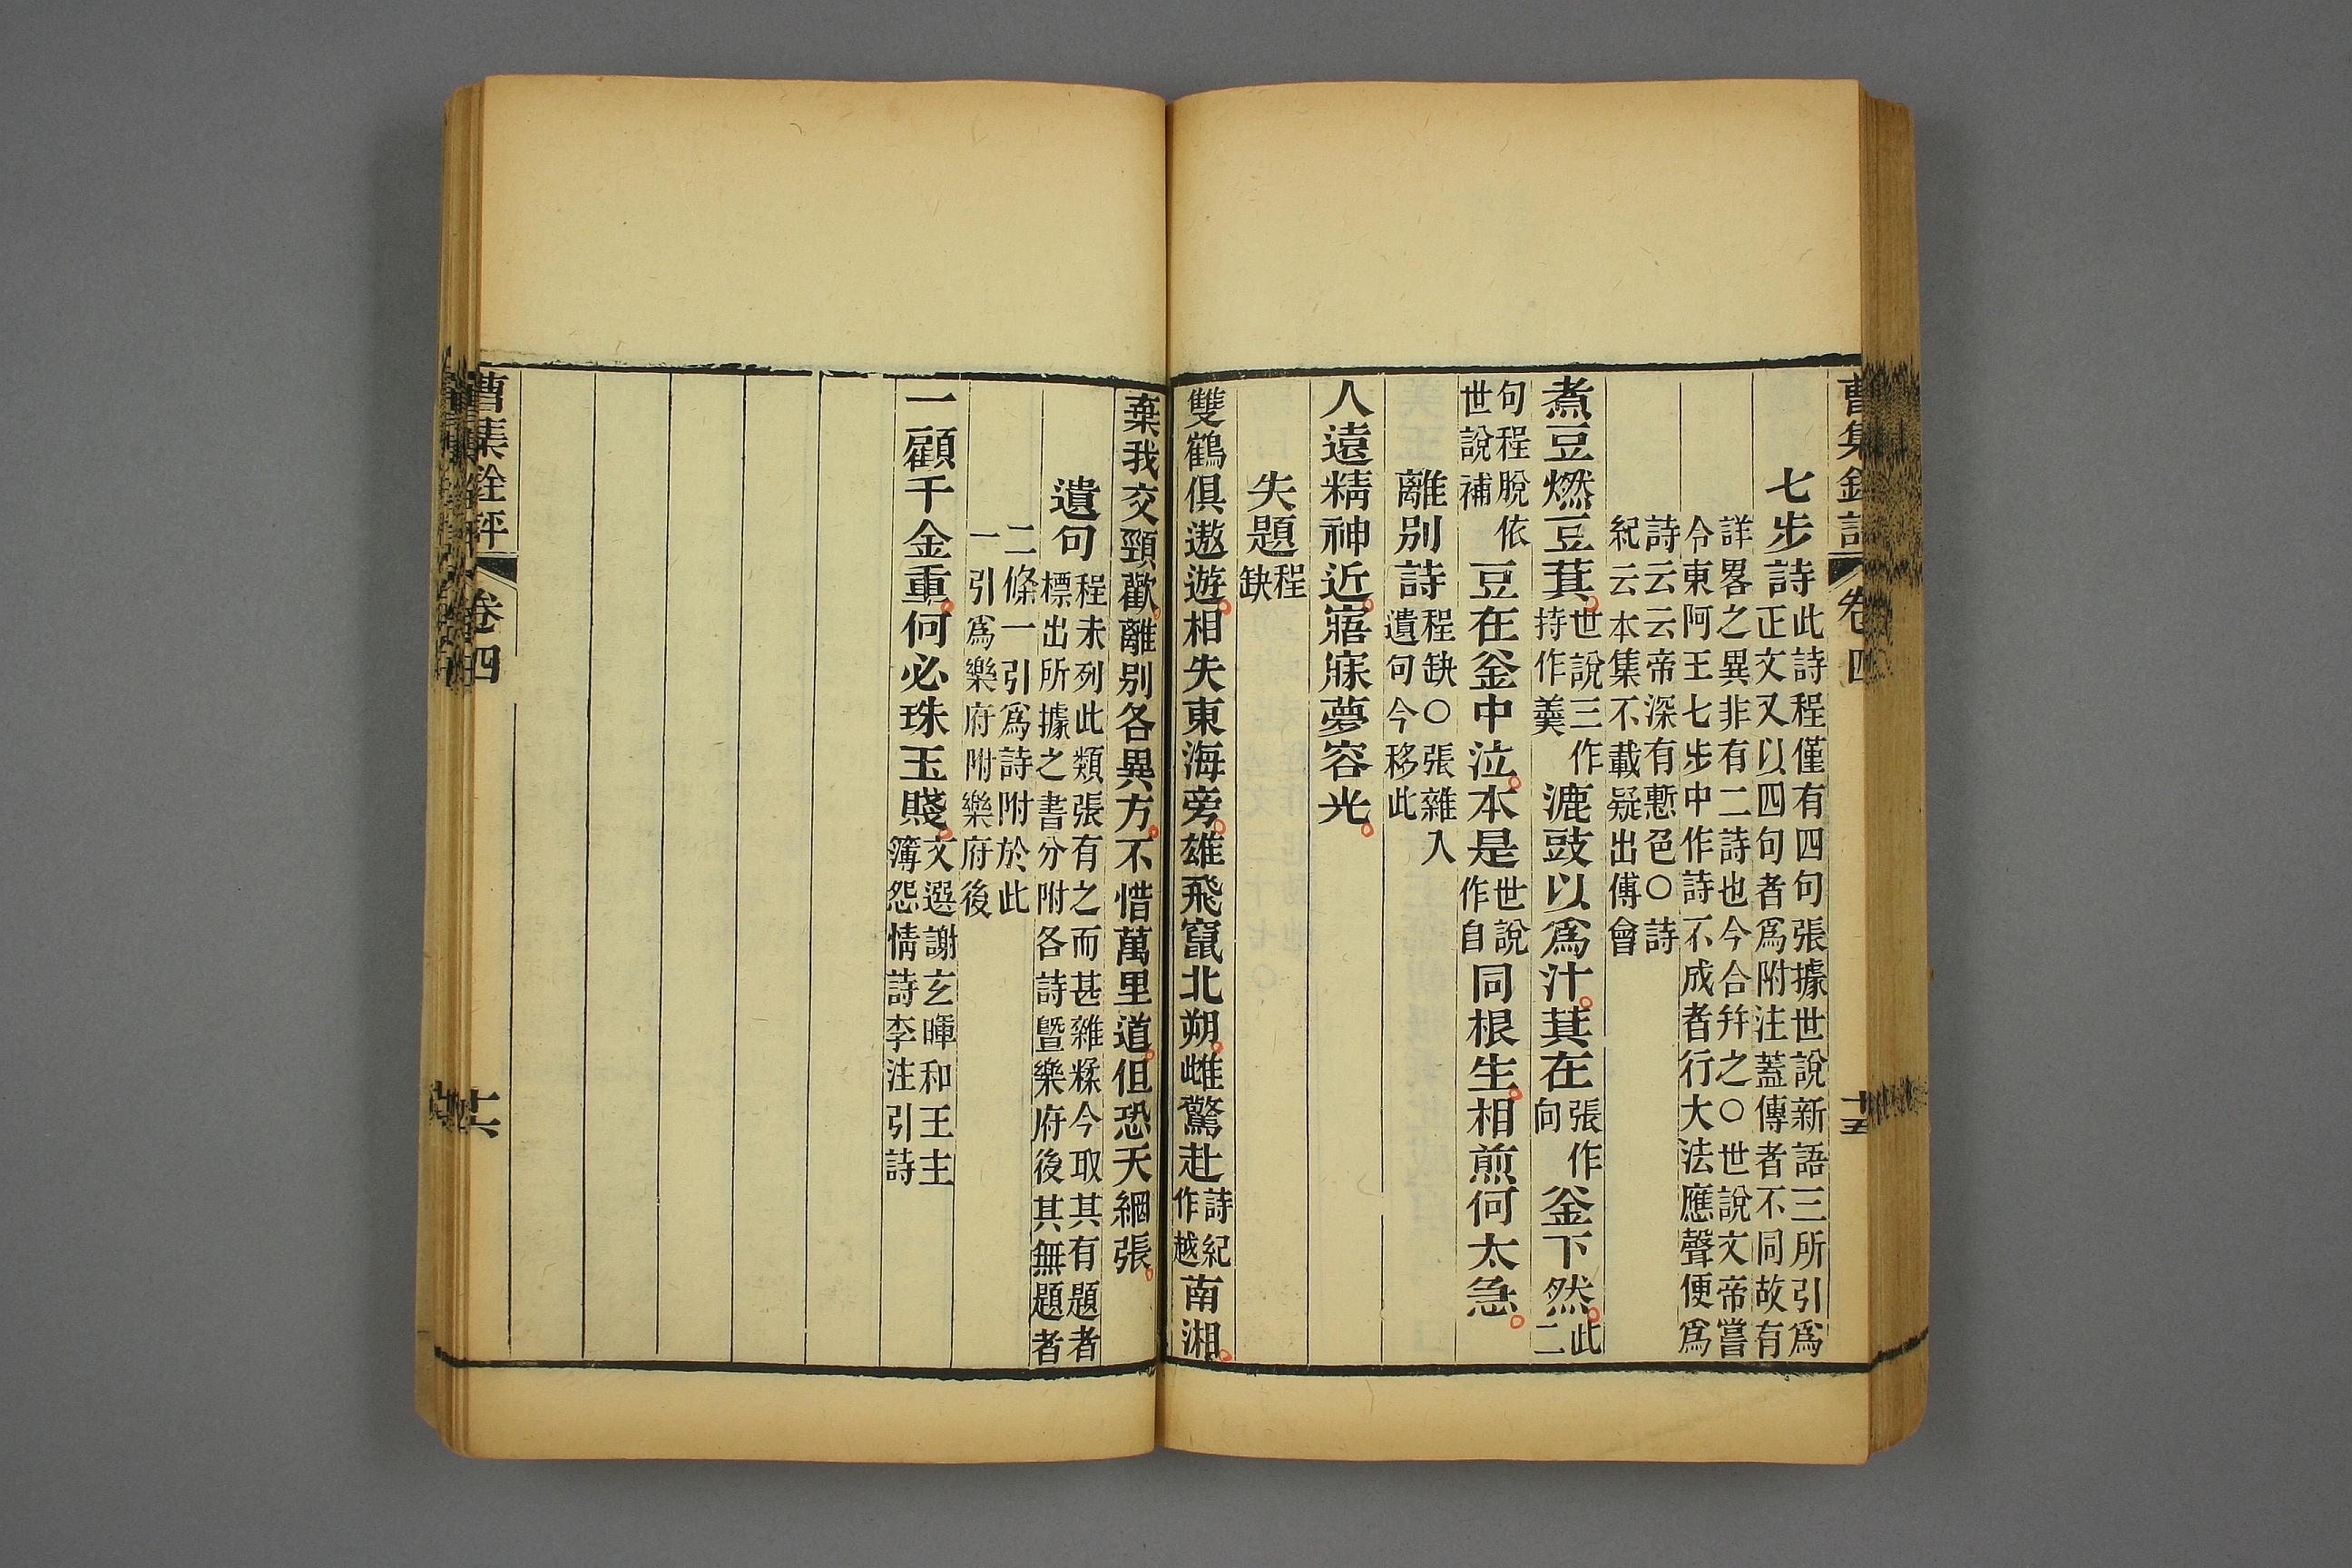 曹集銓評 卷四 十五
七步詩此詩程僅有四句張據世說新語三所引爲
正文又以四句者爲附注蓋傳者不同故有
詳畧之異非有二詩也今合幷之○世說文帝嘗
令東阿王七步中作詩不成者行大法應聲便爲
詩云云帝深有慙色○詩
紀云本集不載疑出傅會
煮豆燃豆萁世說三作持作羹漉豉以爲汁萁在張作向釜下然此二
句程脫依世說補豆在釜中泣本是世說作自同根生相煎何太急
離別詩程缺○張雜入遺句今移此
人遠精神近寤寐夢容光
失題程缺
雙鶴俱遨遊相失東海旁雄飛竄北朔雌驚赴詩紀作越南湘
棄我交頸歡離別各異方不惜萬里道但恐天網張
遺句程未列此類張有之而甚雜糅今取其有題者
標出所據之書分附各詩曁樂府後其無題者
二條一引爲詩附於此
一引爲樂府附樂府後
一顧千金重何必珠玉賤文選謝玄暉和王主簿怨情詩李注引詩
曹集銓評 卷四 十六